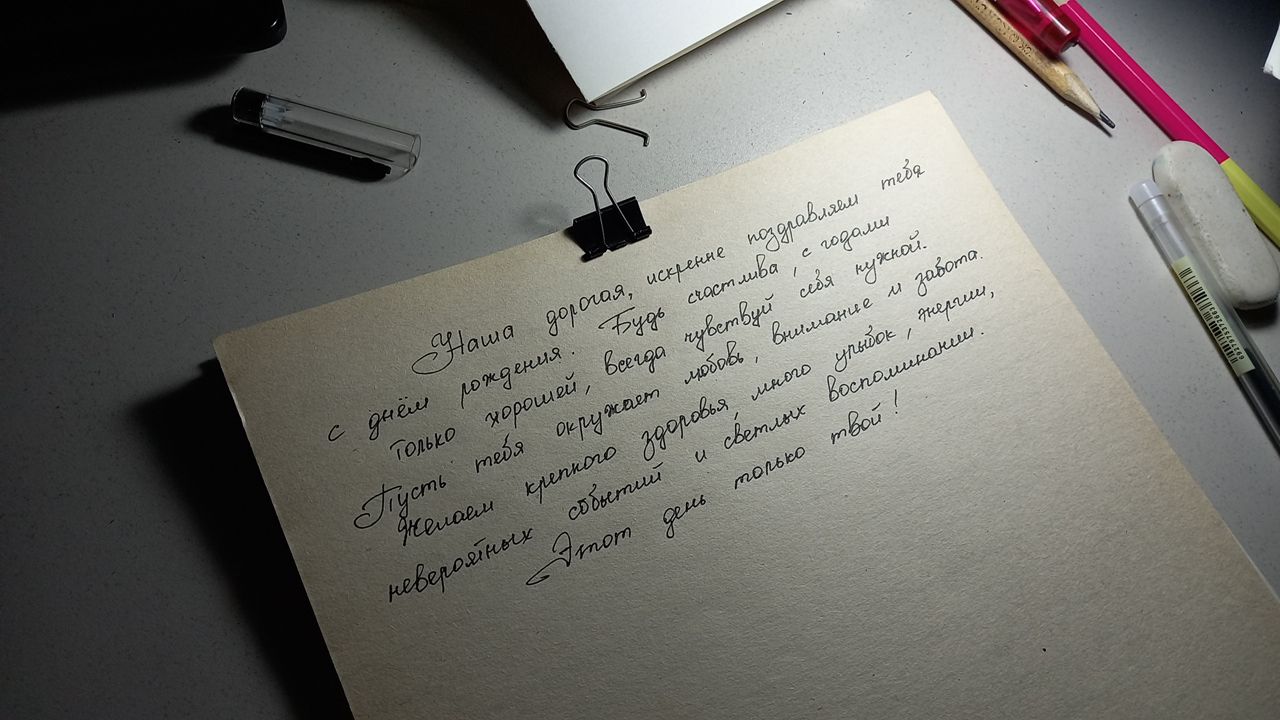 Наша дорогая, искренне поздравляем тебя
с днём рождения. Будь счастлива, с годами
только хорошей, всегда чувствуй себя нужной.
Пусть тебя окружает любовь, внимание и забота.
Желаем крепкого здоровья, много улыбок, энергии,
невероятных событий и светлых воспоминании.
Этот день только твой!